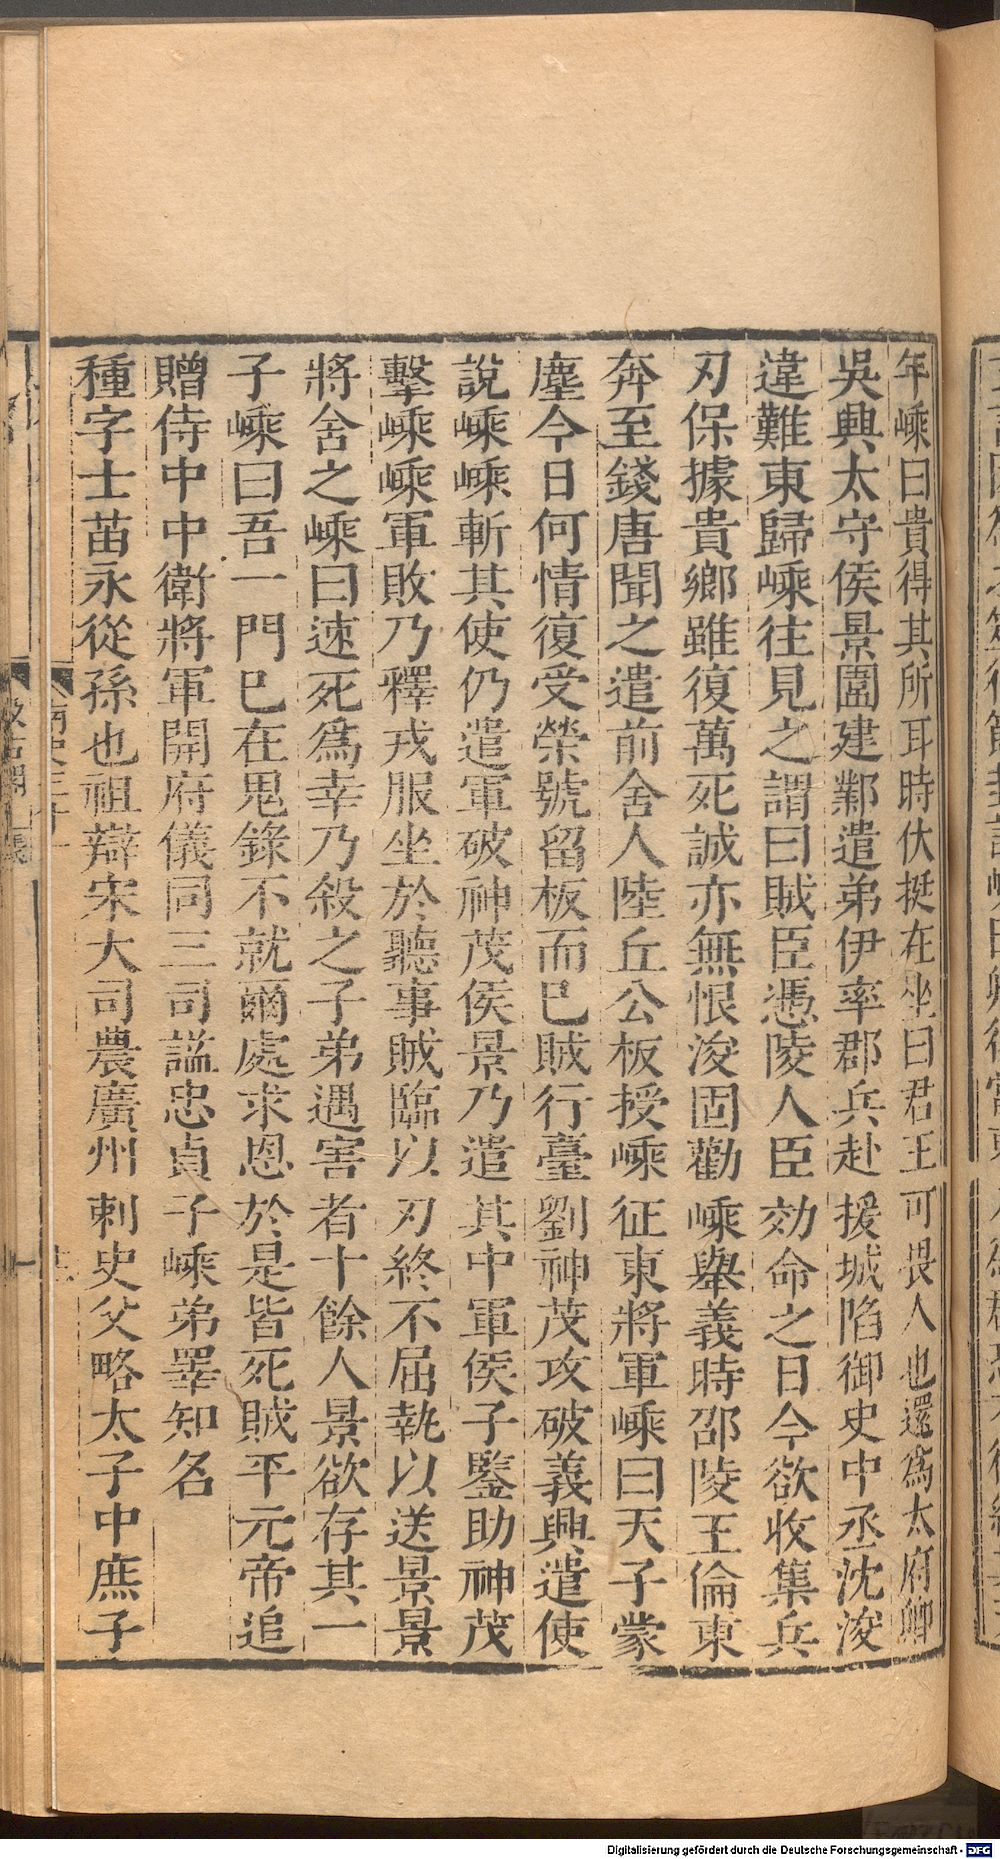 年嵊曰貴得其所耳時伏挺在坐曰君王可畏人也還爲太府卿
吳興太守侯景圍建鄴遣弟伊率郡兵赴援城陷御史中丞沈浚
違難東歸嵊往見之謂曰賊臣憑陵人臣効命之日今欲收集兵
刃保據貴鄉雖復萬死誠亦無恨浚固勸嵊舉義時邵陵王倫東
奔至錢唐聞之遣前舍人陸丘公板授嵊征東將軍嵊曰天子蒙
塵今日何情復受榮號留板而已賊行臺劉神茂攻破義興遣使
說嵊嵊斬其使仍遣軍破神茂侯景乃遣其中軍侯子鑒助神茂
擊嵊嵊軍敗乃釋戎服坐於聽事賊臨以刃終不屈執以送景景
將舍之嵊曰速死爲幸乃殺之子弟遇害者十餘人景欲存其一
子嵊曰吾一門已在鬼錄不就爾處求恩於是皆死賊平元帝追
贈侍中中衛將軍開府儀同三司謚忠貞子嵊弟睪知名
種字士苗永從孫也祖辯宋大司農廣州刺史父略太子中庶子
南史三十一
Digitalisierung gefördert durch die Deutsche Forschungsgemeinschaft - DFG